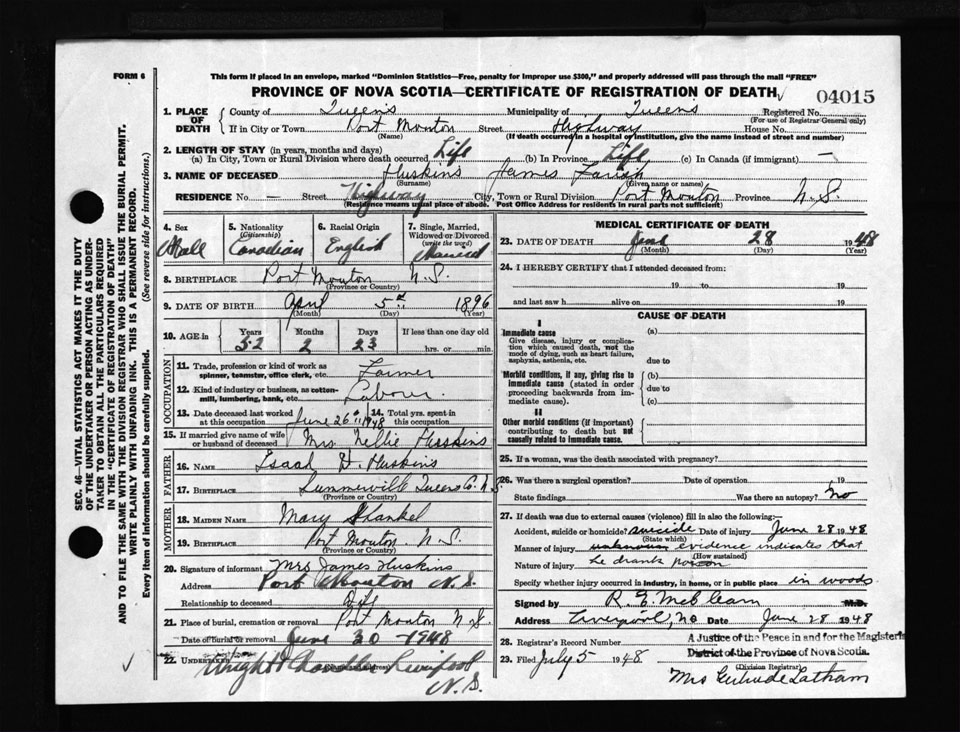 FORM 6
This form if placed in an envelope, marked "Dominion Statistics—Free, penalty for improper use $300," and properly addressed will pass through the mail "FREE"
PROVINCE OF NOVA SCOTIA—CERTIFICATE OF REGISTRATION OF DEATH
04015
1. PLACE OF DEATH County of Queens Municipality of Queens Registered No.
(For use of Registrar General only)
If in City or Town Port Mouton Street Highway House No.
(Name) (If death occurred in a hospital or institution, give the name instead of street and number)
2. LENGTH OF STAY (in years, months and days)
(a) In City, Town or Rural Division where death occurred Life (b) In Province Life (c) In Canada (if immigrant) —
3. NAME OF DECEASED Huskins James
(Surname) (Given name or names)
RESIDENCE No. — Street Highway City, Town or Rural Division Port Mouton Province N.S.
(Residence means usual place of abode. Post Office Address for residents in rural parts not sufficient)
4. Sex Male
5. Nationality (Citizenship) Canadian
6. Racial Origin English
7. Single, Married, Widowed or Divorced (write the word) Married
8. BIRTHPLACE Port Mouton N.S.
(Province or Country)
9. DATE OF BIRTH April 5th 1896
(Month) (Day) (Year)
10. AGE in Years 52 Months 2 Days 23 If less than one day old
hrs. or min.
OCCUPATION
11. Trade, profession or kind of work as spinner, teamster, office clerk, etc. Farmer
12. Kind of industry or business, as cotton-mill, lumbering, bank, etc. Labour.
13. Date deceased last worked at this occupation June 26th 1948 14. Total yrs. spent in this occupation
15. If married give name of wife or husband of deceased Mrs. Nellie Huskins
FATHER
16. NAME Isaac H. Huskins
17. BIRTHPLACE Summerville Queens Co. N.S.
(Province or Country)
MOTHER
18. MAIDEN NAME Mary Shankel
19. BIRTHPLACE Port Mouton. N.S.
(Province or Country)
20. Signature of informant Mrs James Huskins
Address Port Mouton N.S.
Relationship to deceased
21. Place of burial, cremation or removal Port Mouton N.S.
Date of burial or removal June 30 - 1948
22. Undertaker Wright Liverpool
N.S.
MEDICAL CERTIFICATE OF DEATH
23. DATE OF DEATH June 28 1948
(Month) (Day) (Year)
24. I HEREBY CERTIFY that I attended deceased from:
19 to 19
and last saw h alive on 19
CAUSE OF DEATH
I
Immediate cause (a)
Give disease, injury or complication which caused death, not the mode of dying, such as heart failure, asphyxia, asthenia, etc.
due to
Morbid conditions, if any, giving rise to immediate cause (stated in order proceeding backwards from immediate cause).
(b)
due to
(c)
II
Other morbid conditions (if important) contributing to death but not causally related to immediate cause.
25. If a woman, was the death associated with pregnancy?
26. Was there a surgical operation? Date of operation 19
State findings Was there an autopsy? no
27. If death was due to external causes (violence) fill in also the following:—
Accident, suicide or homicide? suicide Date of injury June 28 1948
(State which)
Manner of injury unknown evidence indicates that
(How sustained)
Nature of injury he drank poison
Specify whether injury occurred in industry, in home, or in public place in woods
Signed by M.D.
Address Liverpool, NS Date June 28 1948
28. Registrar's Record Number
A Justice of the Peace in and for the Magisteria
District of the Province of Nova Scotia.
23 Filed July 5 1948
(Division Registrar)
Mrs Gertrude Latham
SEC. 46—VITAL STATISTICS ACT MAKES IT THE DUTY
OF THE UNDERTAKER OR PERSON ACTING AS UNDER-
TAKER TO OBTAIN ALL THE PARTICULARS REQUIRED
IN THE "CERTIFICATE OF REGISTRATION OF DEATH"
AND TO FILE THE SAME WITH THE DIVISION REGISTRAR WHO SHALL ISSUE THE BURIAL PERMIT.
WRITE PLAINLY WITH UNFADING INK. THIS IS A PERMANENT RECORD.
Every item of information should be carefully supplied. (See reverse side for instructions.)